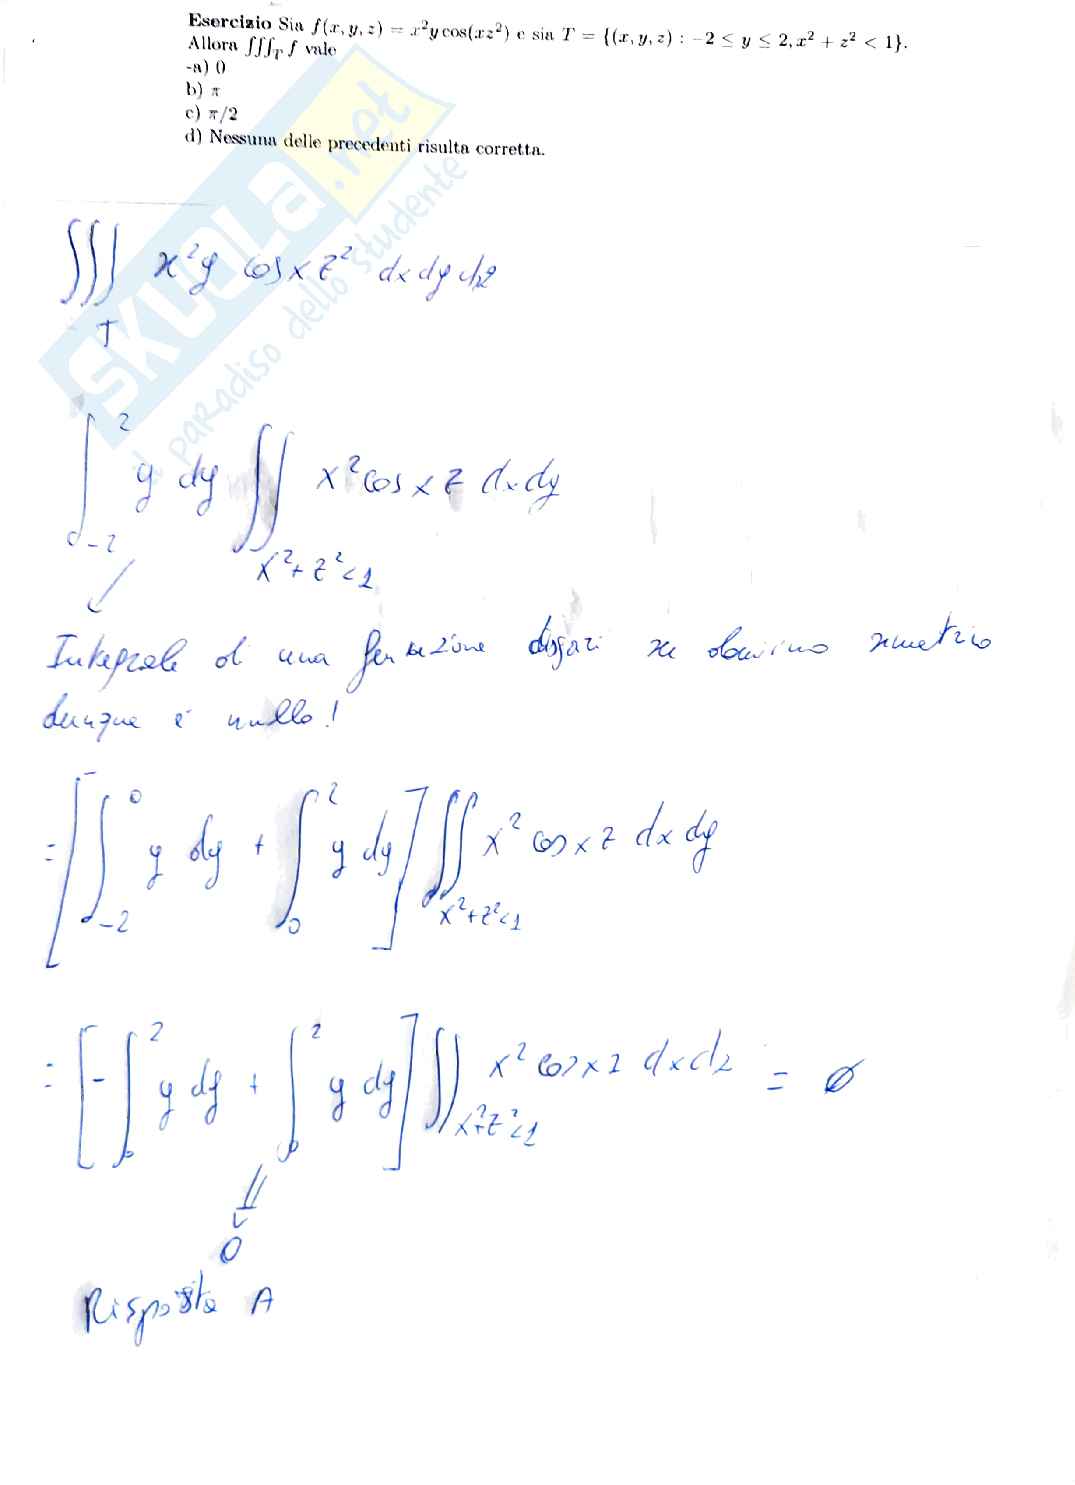 Esercizio Sia f(x, y, z) = x²y cos(xz²) e sia T = {(x, y, z) : −2 ≤ y ≤ 2, x² + z² < 1}.
Allora ∫∫∫_T f vale
-a) 0
b) π
c) π/2
d) Nessuna delle precedenti risulta corretta.
SKUOLA.net
il paradiso dello studente
∫∫∫_T x²y cos x z² dx dy dz
∫_{-2}^{2} y dy ∫∫_{x²+z²<1} x² cos x z dx dy
Integrale di una funzione dispari su dominio simmetrico
dunque è nullo!
= [∫_{-2}^{0} y dy + ∫_{0}^{2} y dy] ∫∫_{x²+z²<1} x² cos x z dx dy
= [-∫_{0}^{2} y dy + ∫_{0}^{2} y dy] ∫∫_{x²+z²<1} x² cos x z dx dz = 0
0
Risposta A